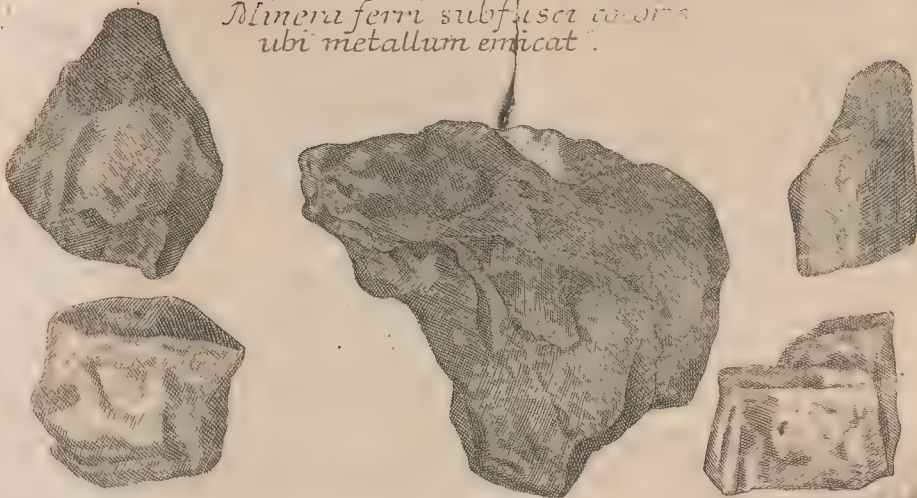 Minera ferri subfusci
ubi metallum emicat.